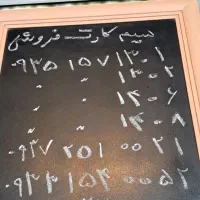 سیم کارت فروشی
۰۹۳۵ ۱۵۷ ۱۳۰۱
〃 〃 ۱۳۰۲
〃 〃 ۱۴۰۶
〃 〃 ۱۴۰۸
۰۹۳۷ ۲۵۱ ۰۰۲۱
۰۹۳۳ ۱۵۴ ۰۰۵۲